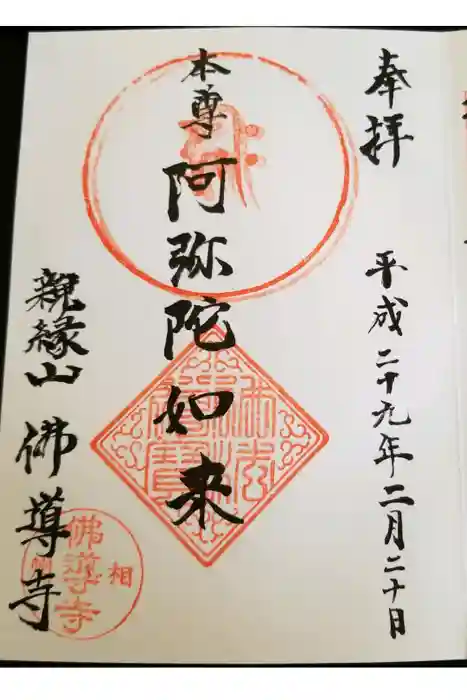 奉拝
平成二十九年二月二十日
本尊
阿弥陀如来
親縁山 佛導寺
佛法僧寶
相
佛導寺